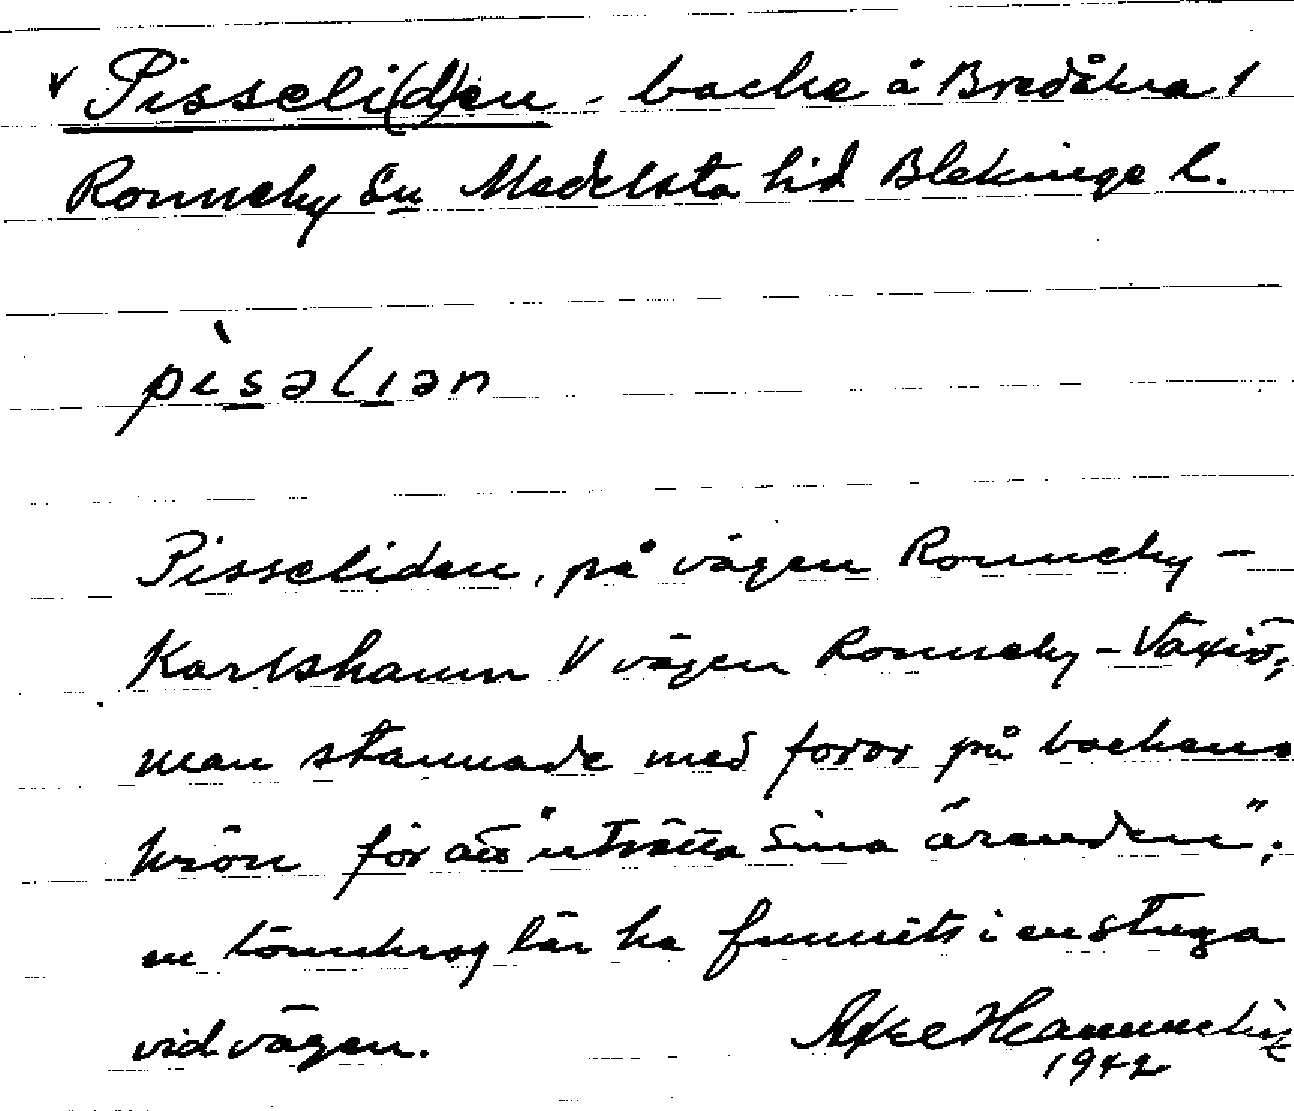 v Pisseli(d)en - backe å Bredåkra 1
Ronneby Sn Medelsta hd Blekinge l.
pìsəlıən
Pisseliden, på vägen Ronneby –
Karlshamn V vägen Ronneby – Växiö;
man stannade med foror på backens
krön för att "uträtta sina ärenden";
en lönnkrog lär ha funnits i en stuga
vid vägen.
Axel
1942